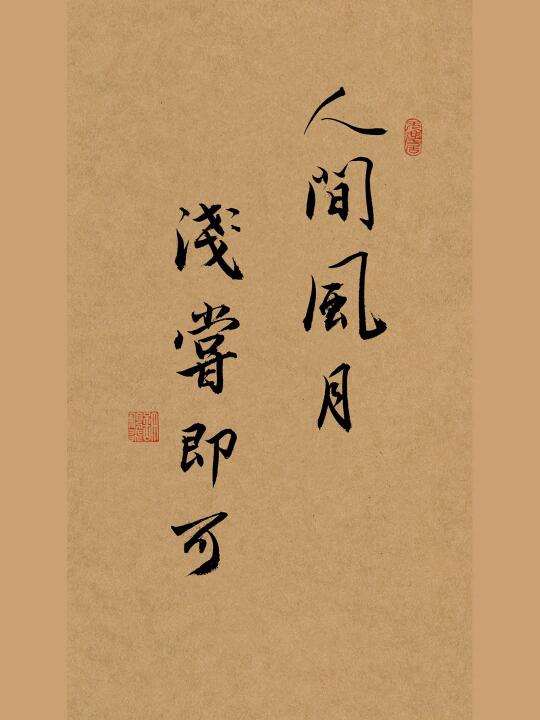 人間風月
淺嘗即可